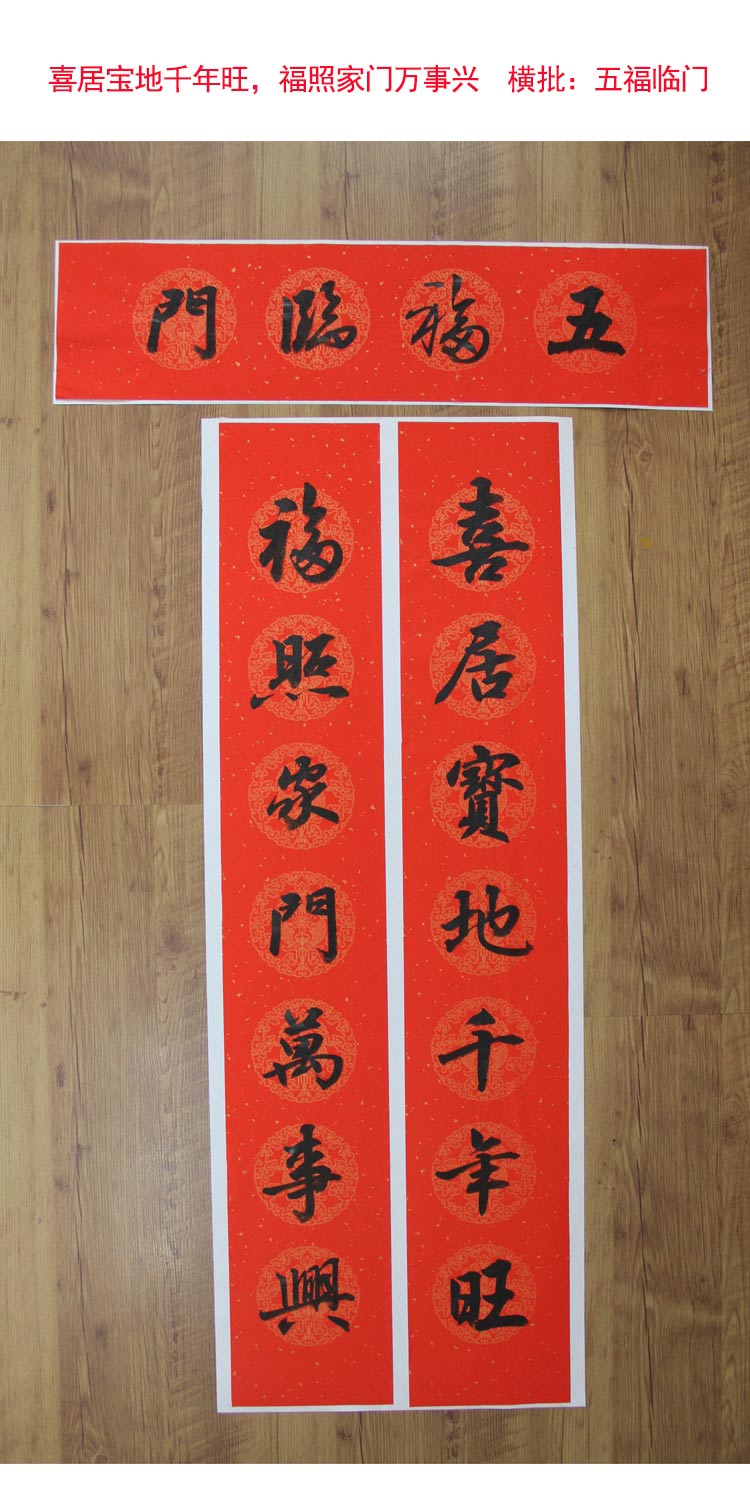 喜居宝地千年旺，福照家门万事兴 横批：五福临门
五福臨門
喜居寳地千年旺
福照家門萬事興